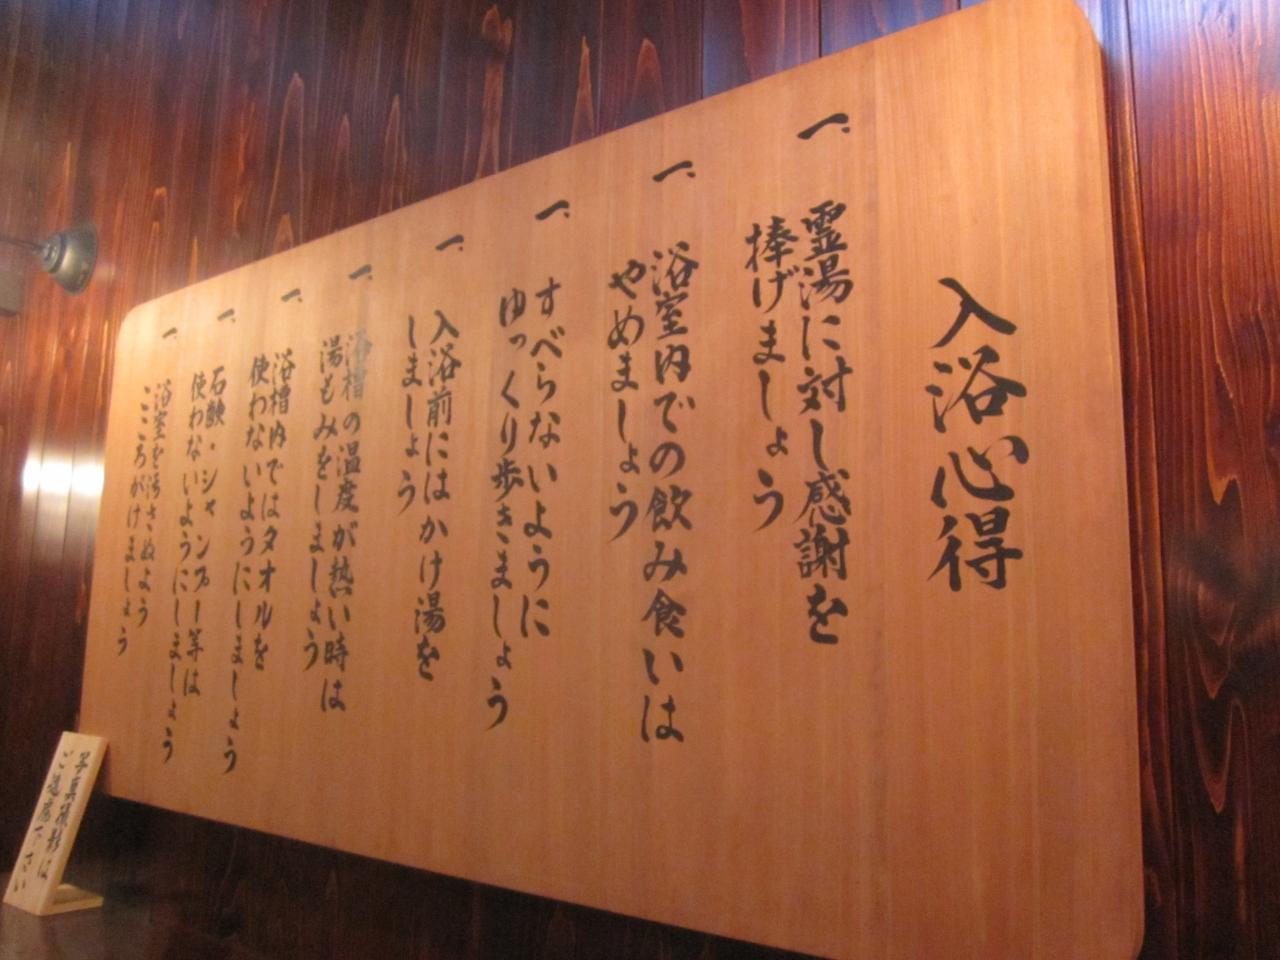 入浴心得
一、霊湯に対し感謝を
捧げましょう
一、浴室内での飲み食いは
やめましょう
一、すべらないように
ゆっくり歩きましょう
一、入浴前にはかけ湯を
しましょう
一、浴槽の温度が熱い時は
湯もみをしましょう
一、浴槽内ではタオルを
使わないようにしましょう
一、石鹸・シャンプー等は
使わないようにしましょう
一、浴室を汚さぬよう
こころがけましょう
写真撮影は
ご遠慮下さい